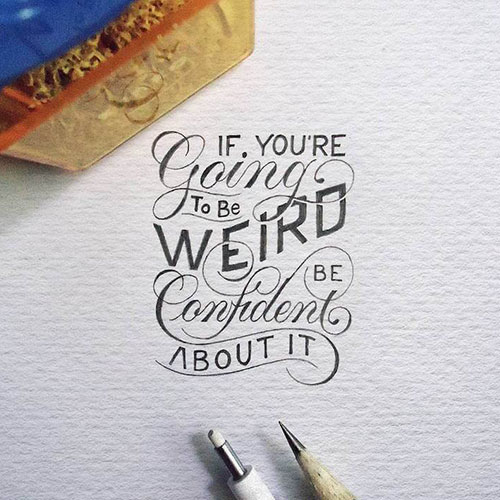 IF YOU'RE
Going
To Be
WEIRD
BE
Confident
ABOUT IT